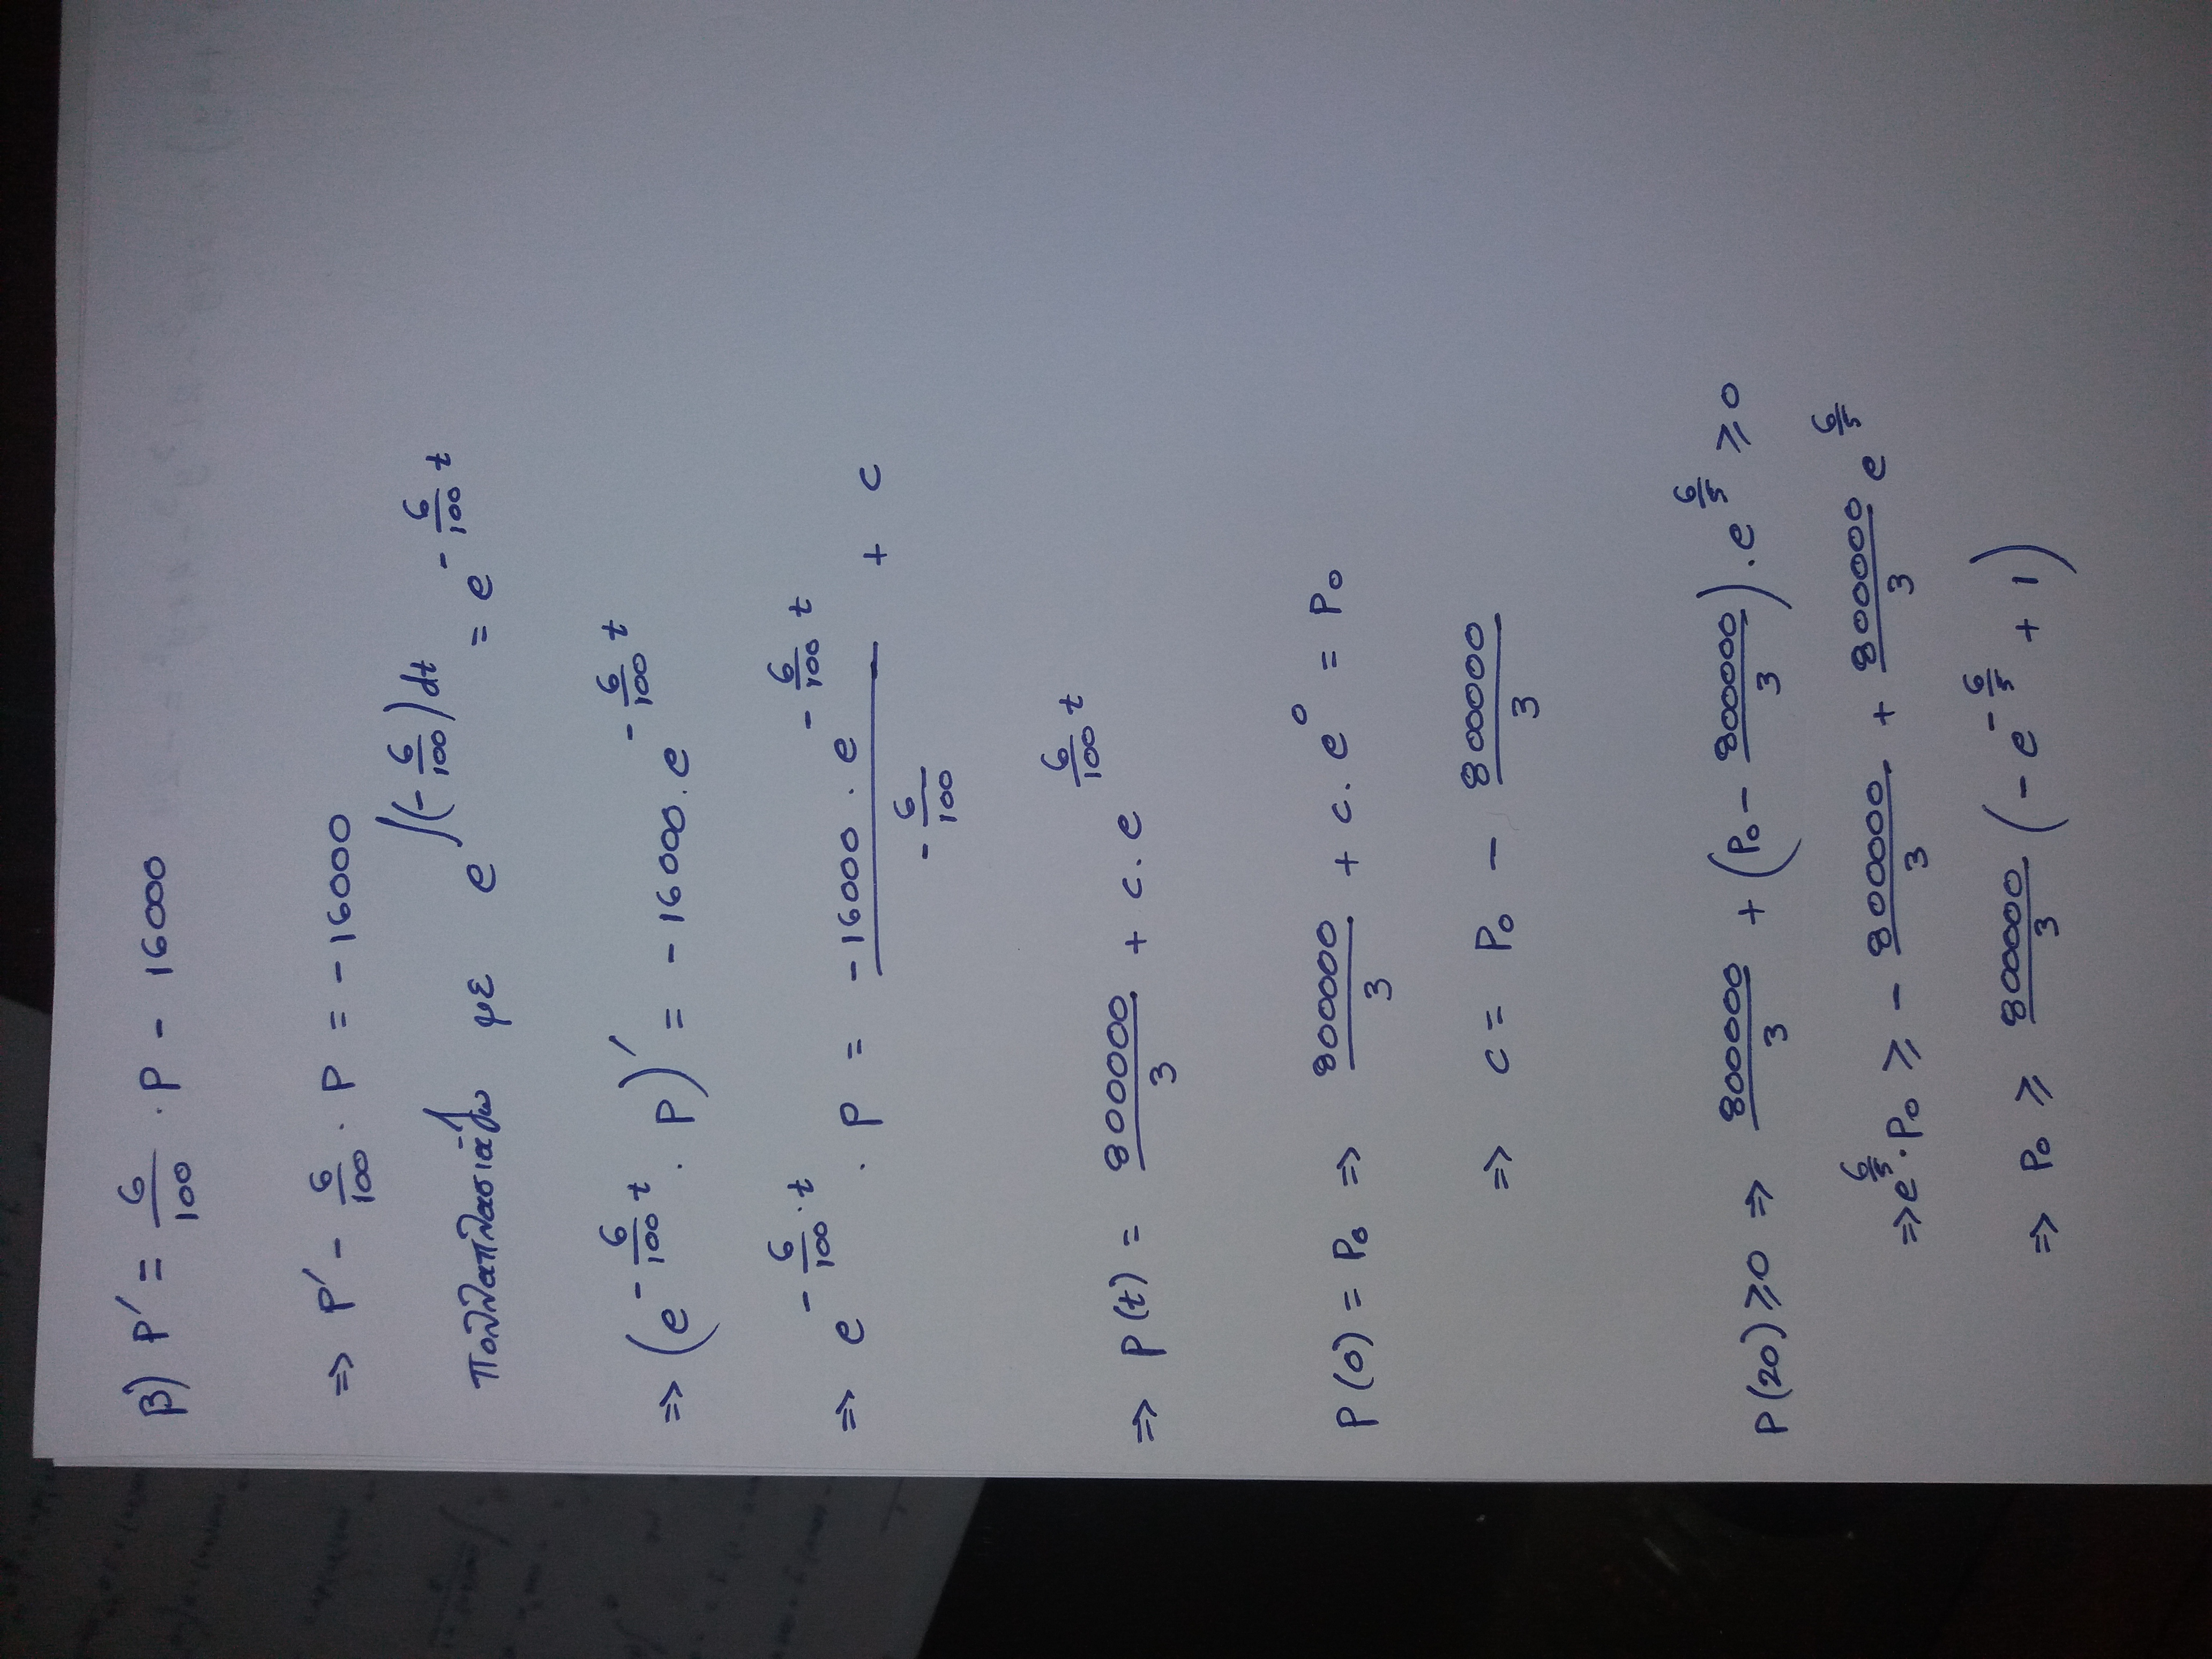 β) P' = 6/100 · P - 16000
=> P' - 6/100 · P = -16000
πολλαπλασιάζω με e^∫(-6/100)dt = e^(-6/100 t)
=> (e^(-6/100 t) · P)' = -16000 · e^(-6/100 t)
=> e^(-6/100 · t) · P = (-16000 · e^(-6/100 t))/(-6/100) + c
=> P(t) = 800000/3 + c · e^(6/100 t)
P(0) = P₀ => 800000/3 + c · e^0 = P₀
=> c = P₀ - 800000/3
P(20) ≥ 0 => 800000/3 + (P₀ - 800000/3) · e^(6/5) ≥ 0
=> e^(6/5) · P₀ ≥ - 800000/3 + 800000/3 e^(6/5)
=> P₀ ≥ 800000/3 (-e^(-6/5) + 1)